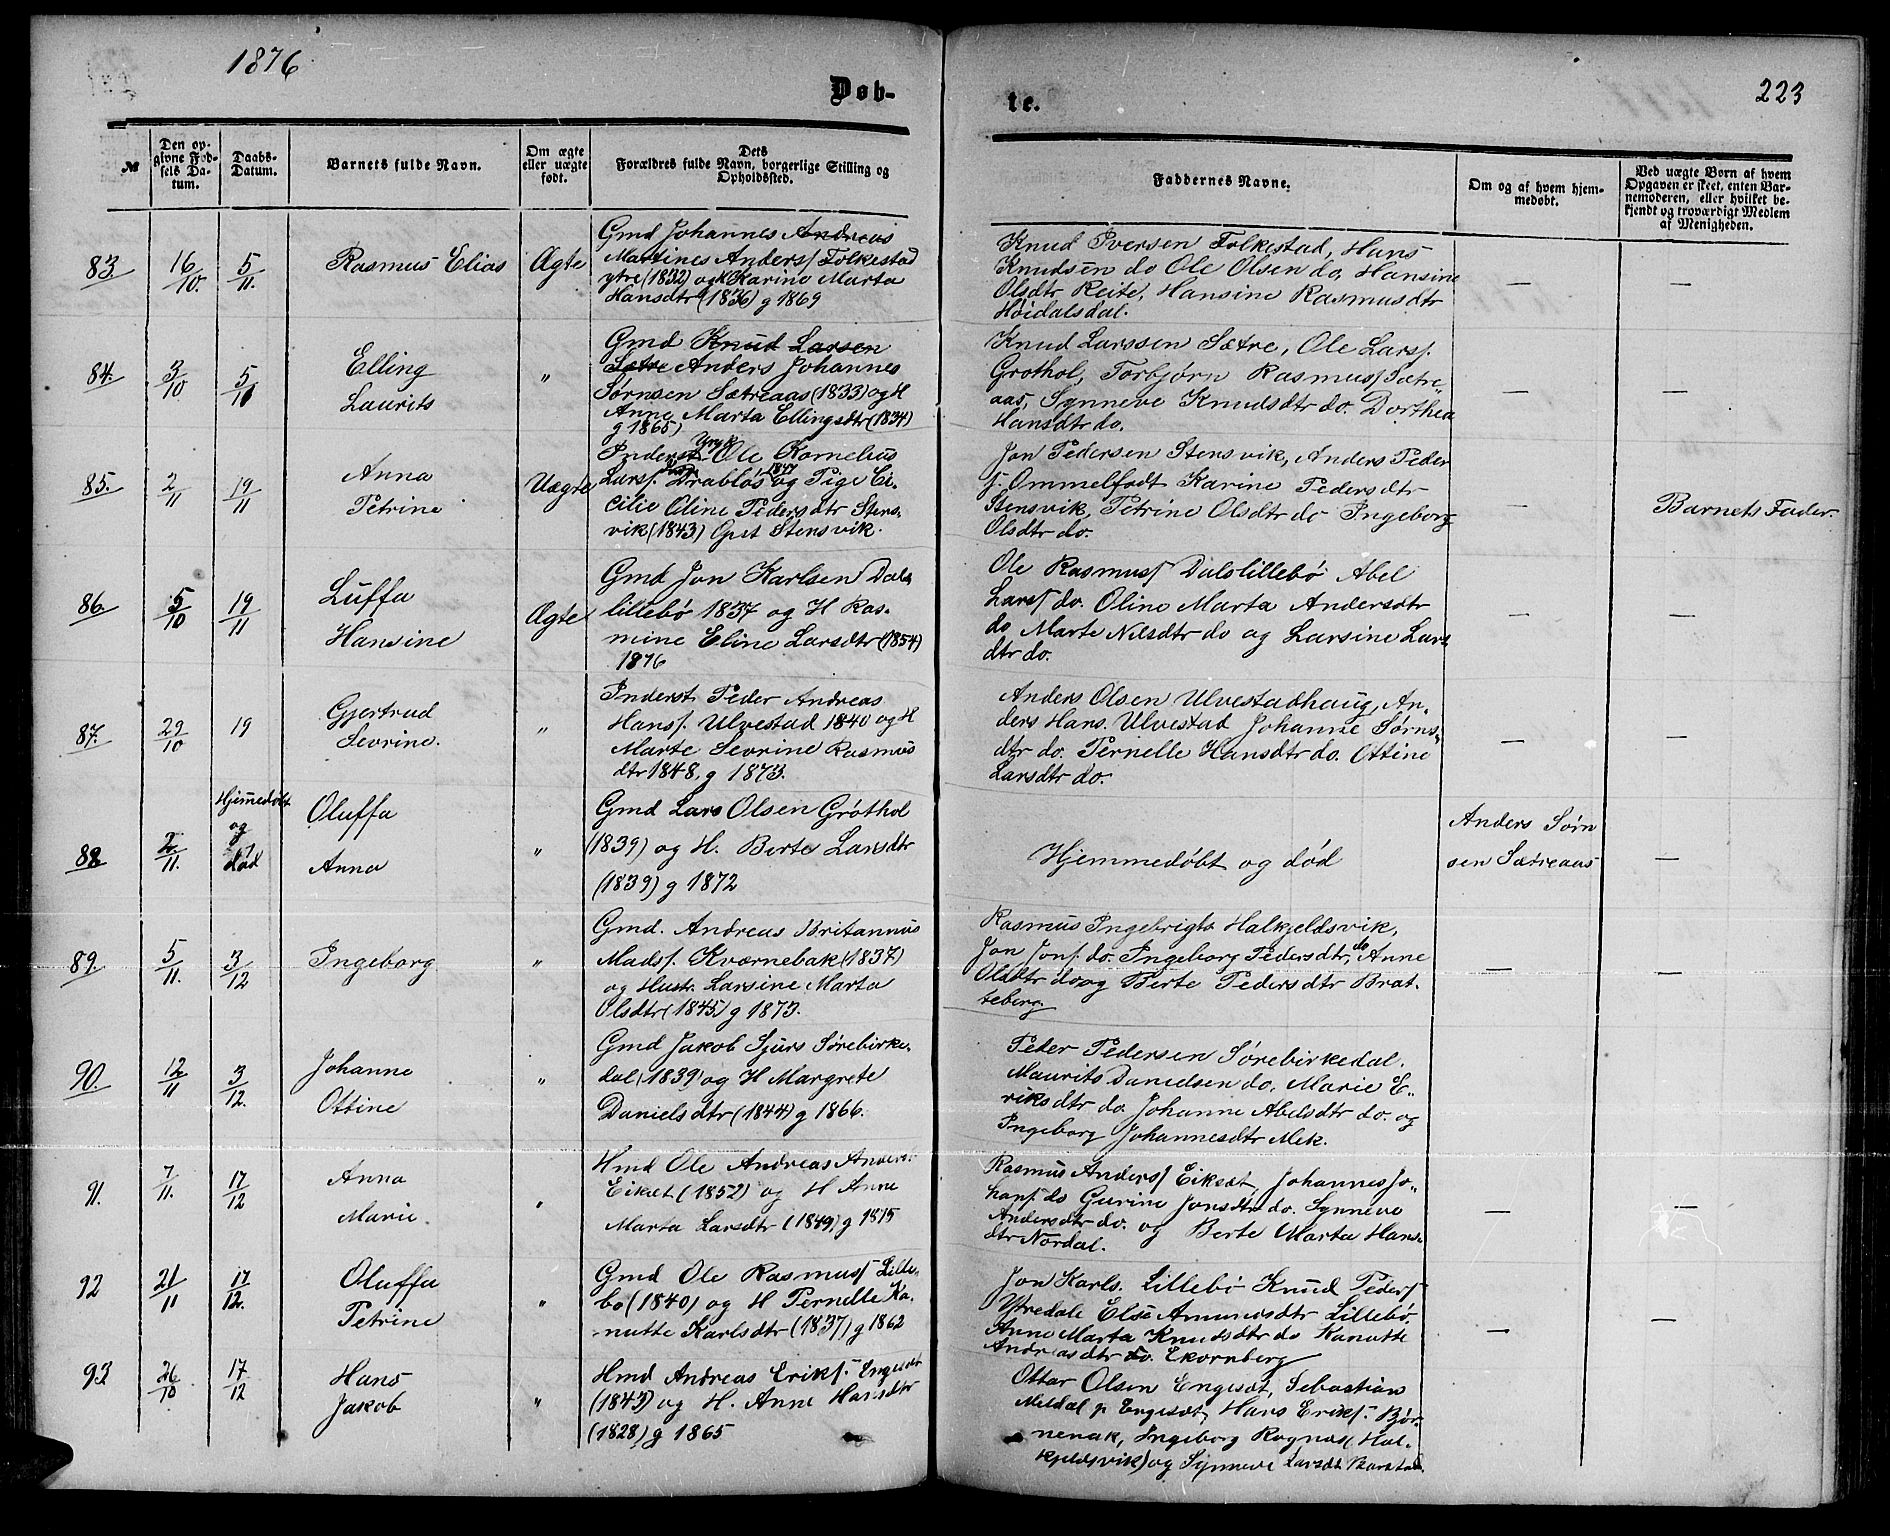 1876
Døb-
te.
223
№
Den op-
givne Fød-
sels Da-
tum.
Daabs-
Datum.
Barnets fulde Navn.
Om ægte
eller uægte
født.
Dets
Forældres fulde Navn, borgerlige Stilling og
Opholdssted.
Faddernes Navne.
Om og af hvem hjem-
medøbt.
Ved uægte Born af hvem
Opgaven er skeet, enten Bar-
nemoderen, eller hvilket be-
kjendt og troværdigt Medlem
af Menigheden.
83
16/10.
5/11.
Rasmus Elias
Ægte
Gmd Johannes Andreas
Martines Anders/ Folkestad
ytre (1832) og K Karine Marta
Hansdtr (1836) g 1869
Knud Iversen Folkestad, Hans
Knudsen do Ole Olsen do, Hansine
Olsdtr Reite, Hansine Rasmusdtr
Høidalsdal.
—
—
84.
3/10
5/11
Elling
Laurits
"
Gmd Knud Larsen
Sætre Anders Johannes
Sørnsen Sætreaas (1833) og H
Anne Marta Ellingsdtr (1834)
g 1865)
Knud Larssen Sætre, Ole Lars/.
Grothol, Torbjørn Rasmus/ Sætre-
aas, Synneve Knudsdtr do. Dorthea
Hansdtr do.
—
—
85.
2/11
19/11
Anna
Petrine
Uægte
Inderst Ole Kornelius
Lars/. Drabløs 1847 og Pige Ci-
cilie Oline Pedersdtr Stens-
vik (1843) Opst Stensvik.
Jon Pedersen Stensvik, Anders Peder
/. Ommelfodt Karine Pedersdtr
Stensvik, Petrine Olsdtr do Ingeborg
Olsdtr do.
—
Barnets Fader.
86
5/10
19/11
Luffa
Hansine
Ægte
Gmd Jon Karlsen Dals
lillebø 1837 og H Ras-
mine Eline Larsdtr (1854)
1876
Ole Rasmus/ Dalslillebø Abel
Lars/ do. Oline Marta Andersdtr
do Marte Nilsdtr do og Larsine Lars-
dtr do.
—
—
87.
29/10
19
Gjertrud
Sevrine.
"
Inderst Peder Andreas
Hans/. Ulvestad 1840 og H
Marte Sevrine Rasmus
dtr 1848, g 1873.
Anders Olsen Ulvestadhaug, An-
ders Hans. Ulvestad Johanne Sørns-
dtr do. Pernelle Hansdtr do. Ottine
Larsdtr do.
—
—
88
2/11.
Hjemedøbt
og
død
Oluffa
Anna
"
Gmd Lars Olsen Gróthol
(1839) og H. Berte Larsdtr
(1839) g 1872
Hjemmedøbt og død
Anders Sørn
sen Sætreaas
—
89.
5/11.
3/12
Ingeborg
"
Gmd. Andreas Britannus
Mads/. Kværnebak (1837)
og Hustr. Larsine Marta
Olsdtr (1845) g 1873.
Rasmus Ingebrigts Halkjeldsvik,
Jon Jons/. do. Ingeborg Pedersdtr do, Anne
Olsdtr do og Berte Pedersdtr Brat-
teberg
—
—
90.
12/11
3/12.
Johanne
Ottine
"
Gmd Jakob Sjurs Sørebirke-
dal (1839) og H Margrete
Danielsdtr (1844) g 1866.
Peder Pedersen Sørebirkedal.
Maurits Danielsen do. Marie E-
riksdtr do. Johanne Abelsdtr do. og
Ingeborg Johannesdtr Mek.
91.
7/11.
17/12
Anna
Marie.
"
Hmd Ole Andreas Anders.
Eikset (1852) og H Anne
Marta Larsdtr (1849) g 1875
Rasmus Anders/ Eiksdt, Johannes Jo-
hans/. do Gurine Jonsdtr do. Synneve
Andersdtr do. og Berte Marta Hans-
dtr Nordal.
—
—
92
21/11
17/12.
Oluffa
Petrine
"
Gmd Ole Rasmus/ Lille-
bø (1840) og H Pernelle Ka-
nutte Karlsdtr (1837) g 1862
Jon Karls. Lillebø Knud Peders/
Ytredale Else Amundsdtr Lillebø.
Anne Marta Knudsdtr do Kanutte
Andreasdtr do. Ekornberg
—
—
93
26/10
17/12
Hans
Jakob
"
Hmd Andreas Eriks/. Engesæt
(1843) og H. Anne Hansdtr
(1828) g 1865
Ottar Olsen Engesdt, Sebastian
Meldal p Engesdt, Hans Eriks/. Bjør-
nenak, Ingeborg Rognas/ (Hal-
kjeldsvik) og Synneve Larsdt Barstad.